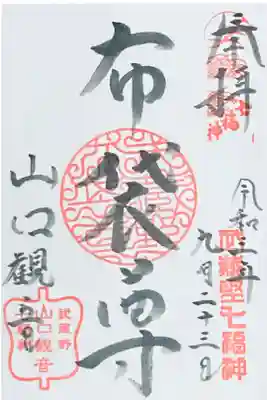 奉拝
令和三年
九月二十三日
武蔵野七福神
布袋尊
山口観音
武蔵野
山口観音